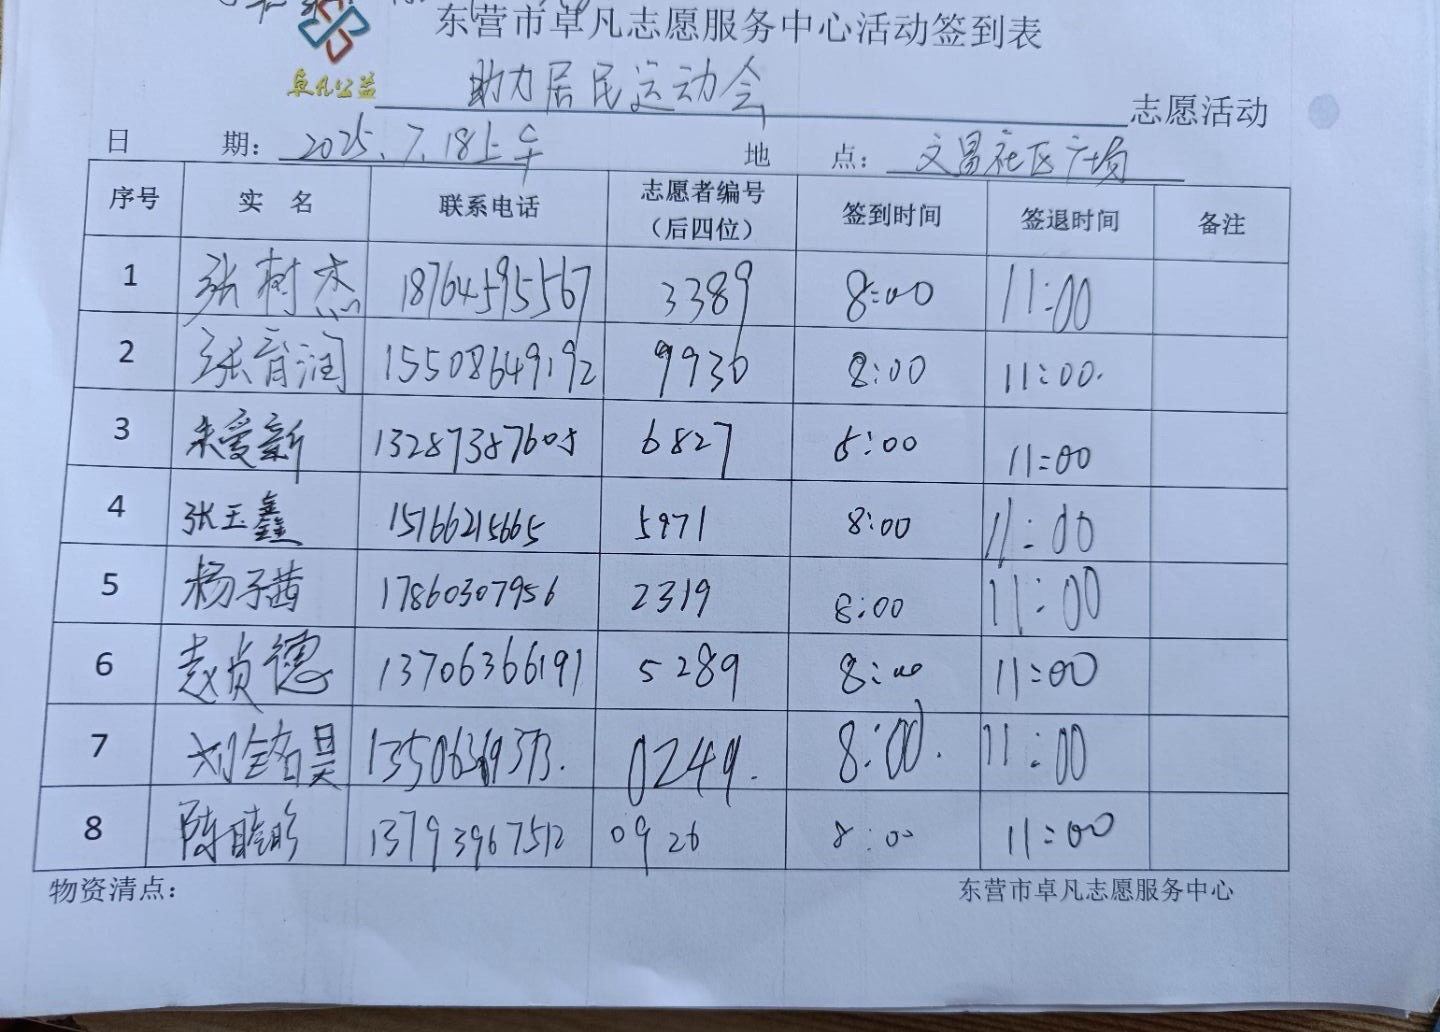 东营市卓凡志愿服务中心活动签到表
卓凡公益 助力居民运动会 志愿活动
日 期： 2025.7.18上午 地 点： 文昌社区广场
序号 实 名 联系电话 志愿者编号（后四位） 签到时间 签退时间 备注
1 张树杰 18764595567 3389 8:00 11:00
2 张育润 15508649192 9936 8:00 11:00.
3 朱爱新 13287387605 6827 8:00 11:00
4 张玉鑫 15166215665 5971 8:00 11:00
5 杨子茜 17860307956 2319 8:00 11:00
6 赵尚德 13706366191 5289 8:00 11:00
7 刘铭昊 0249. 8:00. 11:00
8 陈晓彤 13793967512 0926 8:00 11:00
物资清点： 东营市卓凡志愿服务中心